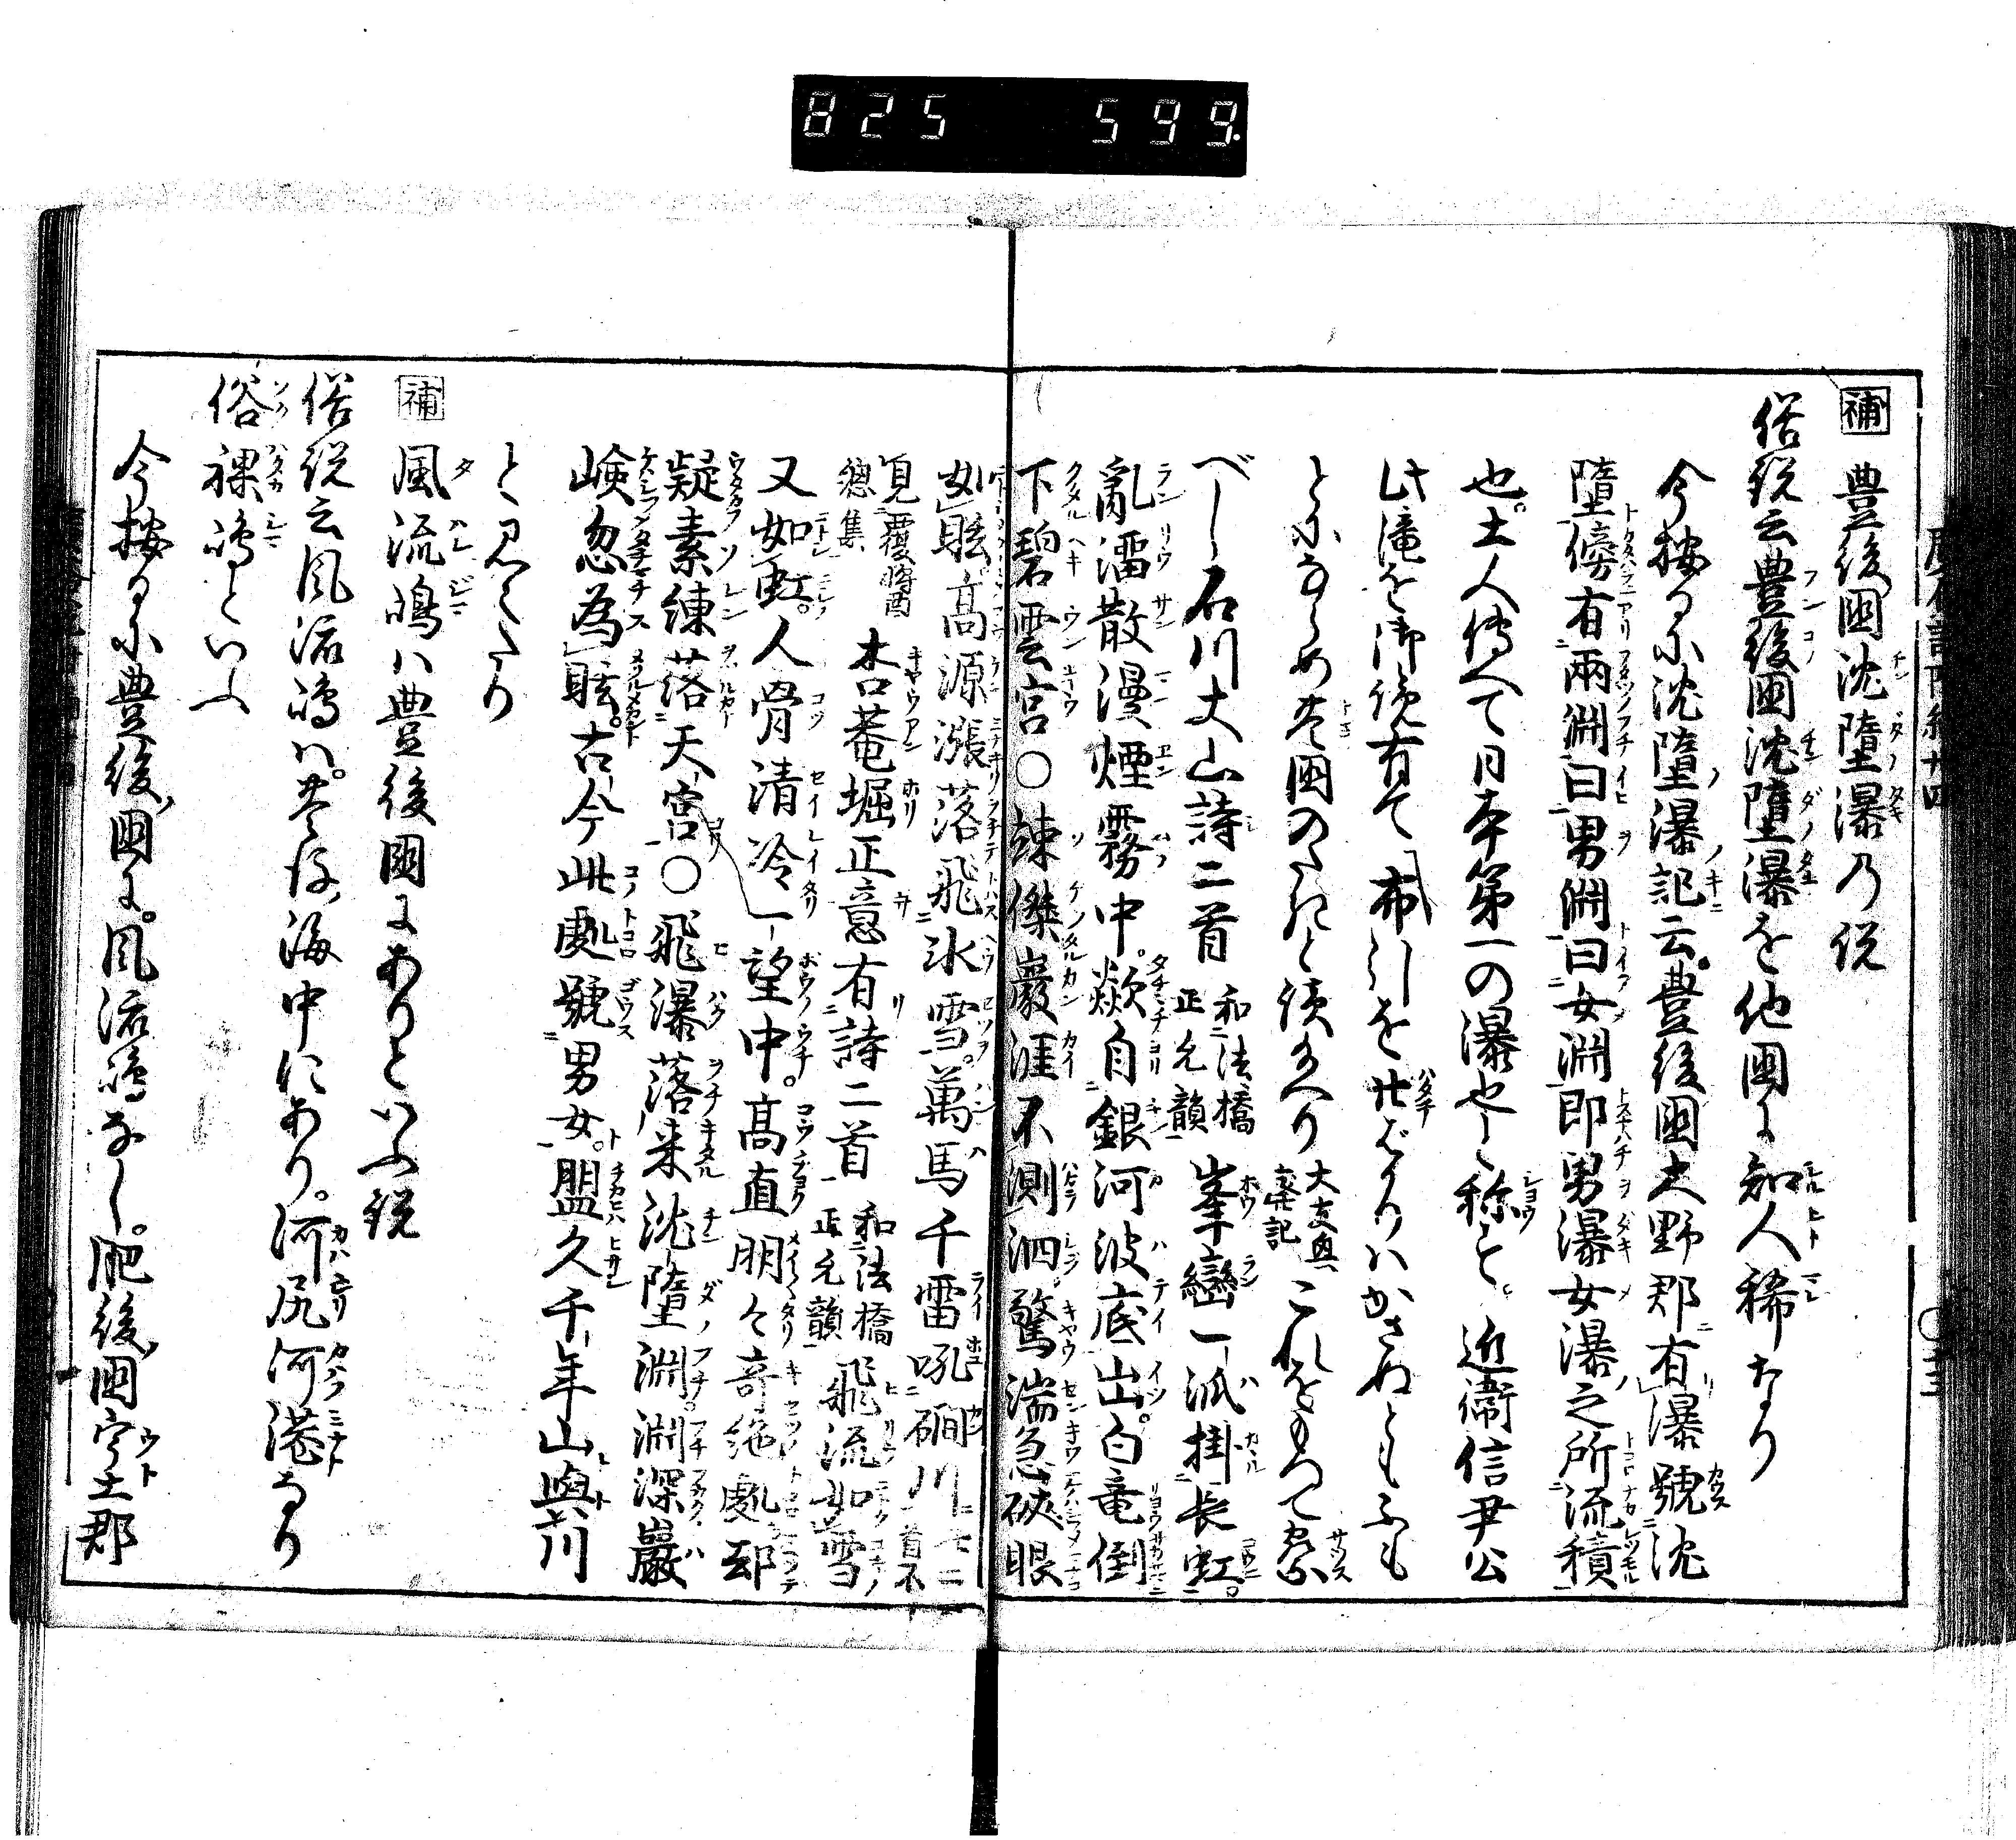 825 599
補 豊後国沈堕瀑の説
俗説云豊後国沈堕瀑を他国に知人稀なり
今按るに沈堕瀑記云豊後国大野郡有瀑號沈
堕傍有兩淵曰男淵曰女淵即男瀑女瀑之所流積
也土人傳へて日本第一の瀑也と称と近衛信尹公
此滝を御覧有て布引を廿ばかりハかさねともふも
とふならめ其国のたきと讀給へり 大友興廃記 これをもつて察
べし石川丈山詩二首 和法橋正允韻 峯巒一派掛長虹
亂濡散漫煙霧中歘自銀河波底出白竜倒
下碧雲宮〇竦傑巖涯不測泗驚湍急硤眼
如眩高源漲落飛氷雪萬馬千雷吼磵川 二首不
見覆醤總集 杏菴堀正意有詩二首 和法橋正允韻 飛流如雪
又如虹人骨清冷一望中高直明々奇絶處却
疑素練落天宮〇飛瀑落来沈堕淵淵深巖
嶮忽為眩古今此處號男女盟久千年山與川
と見へたり
補 風流嶋ハ豊後國にありといふ説
俗説云風流嶋ハ其後海中にあり河尻河港なり
俗裸嶋といふ
今按るに豊後国に風流嶋なし肥後国宇土郡